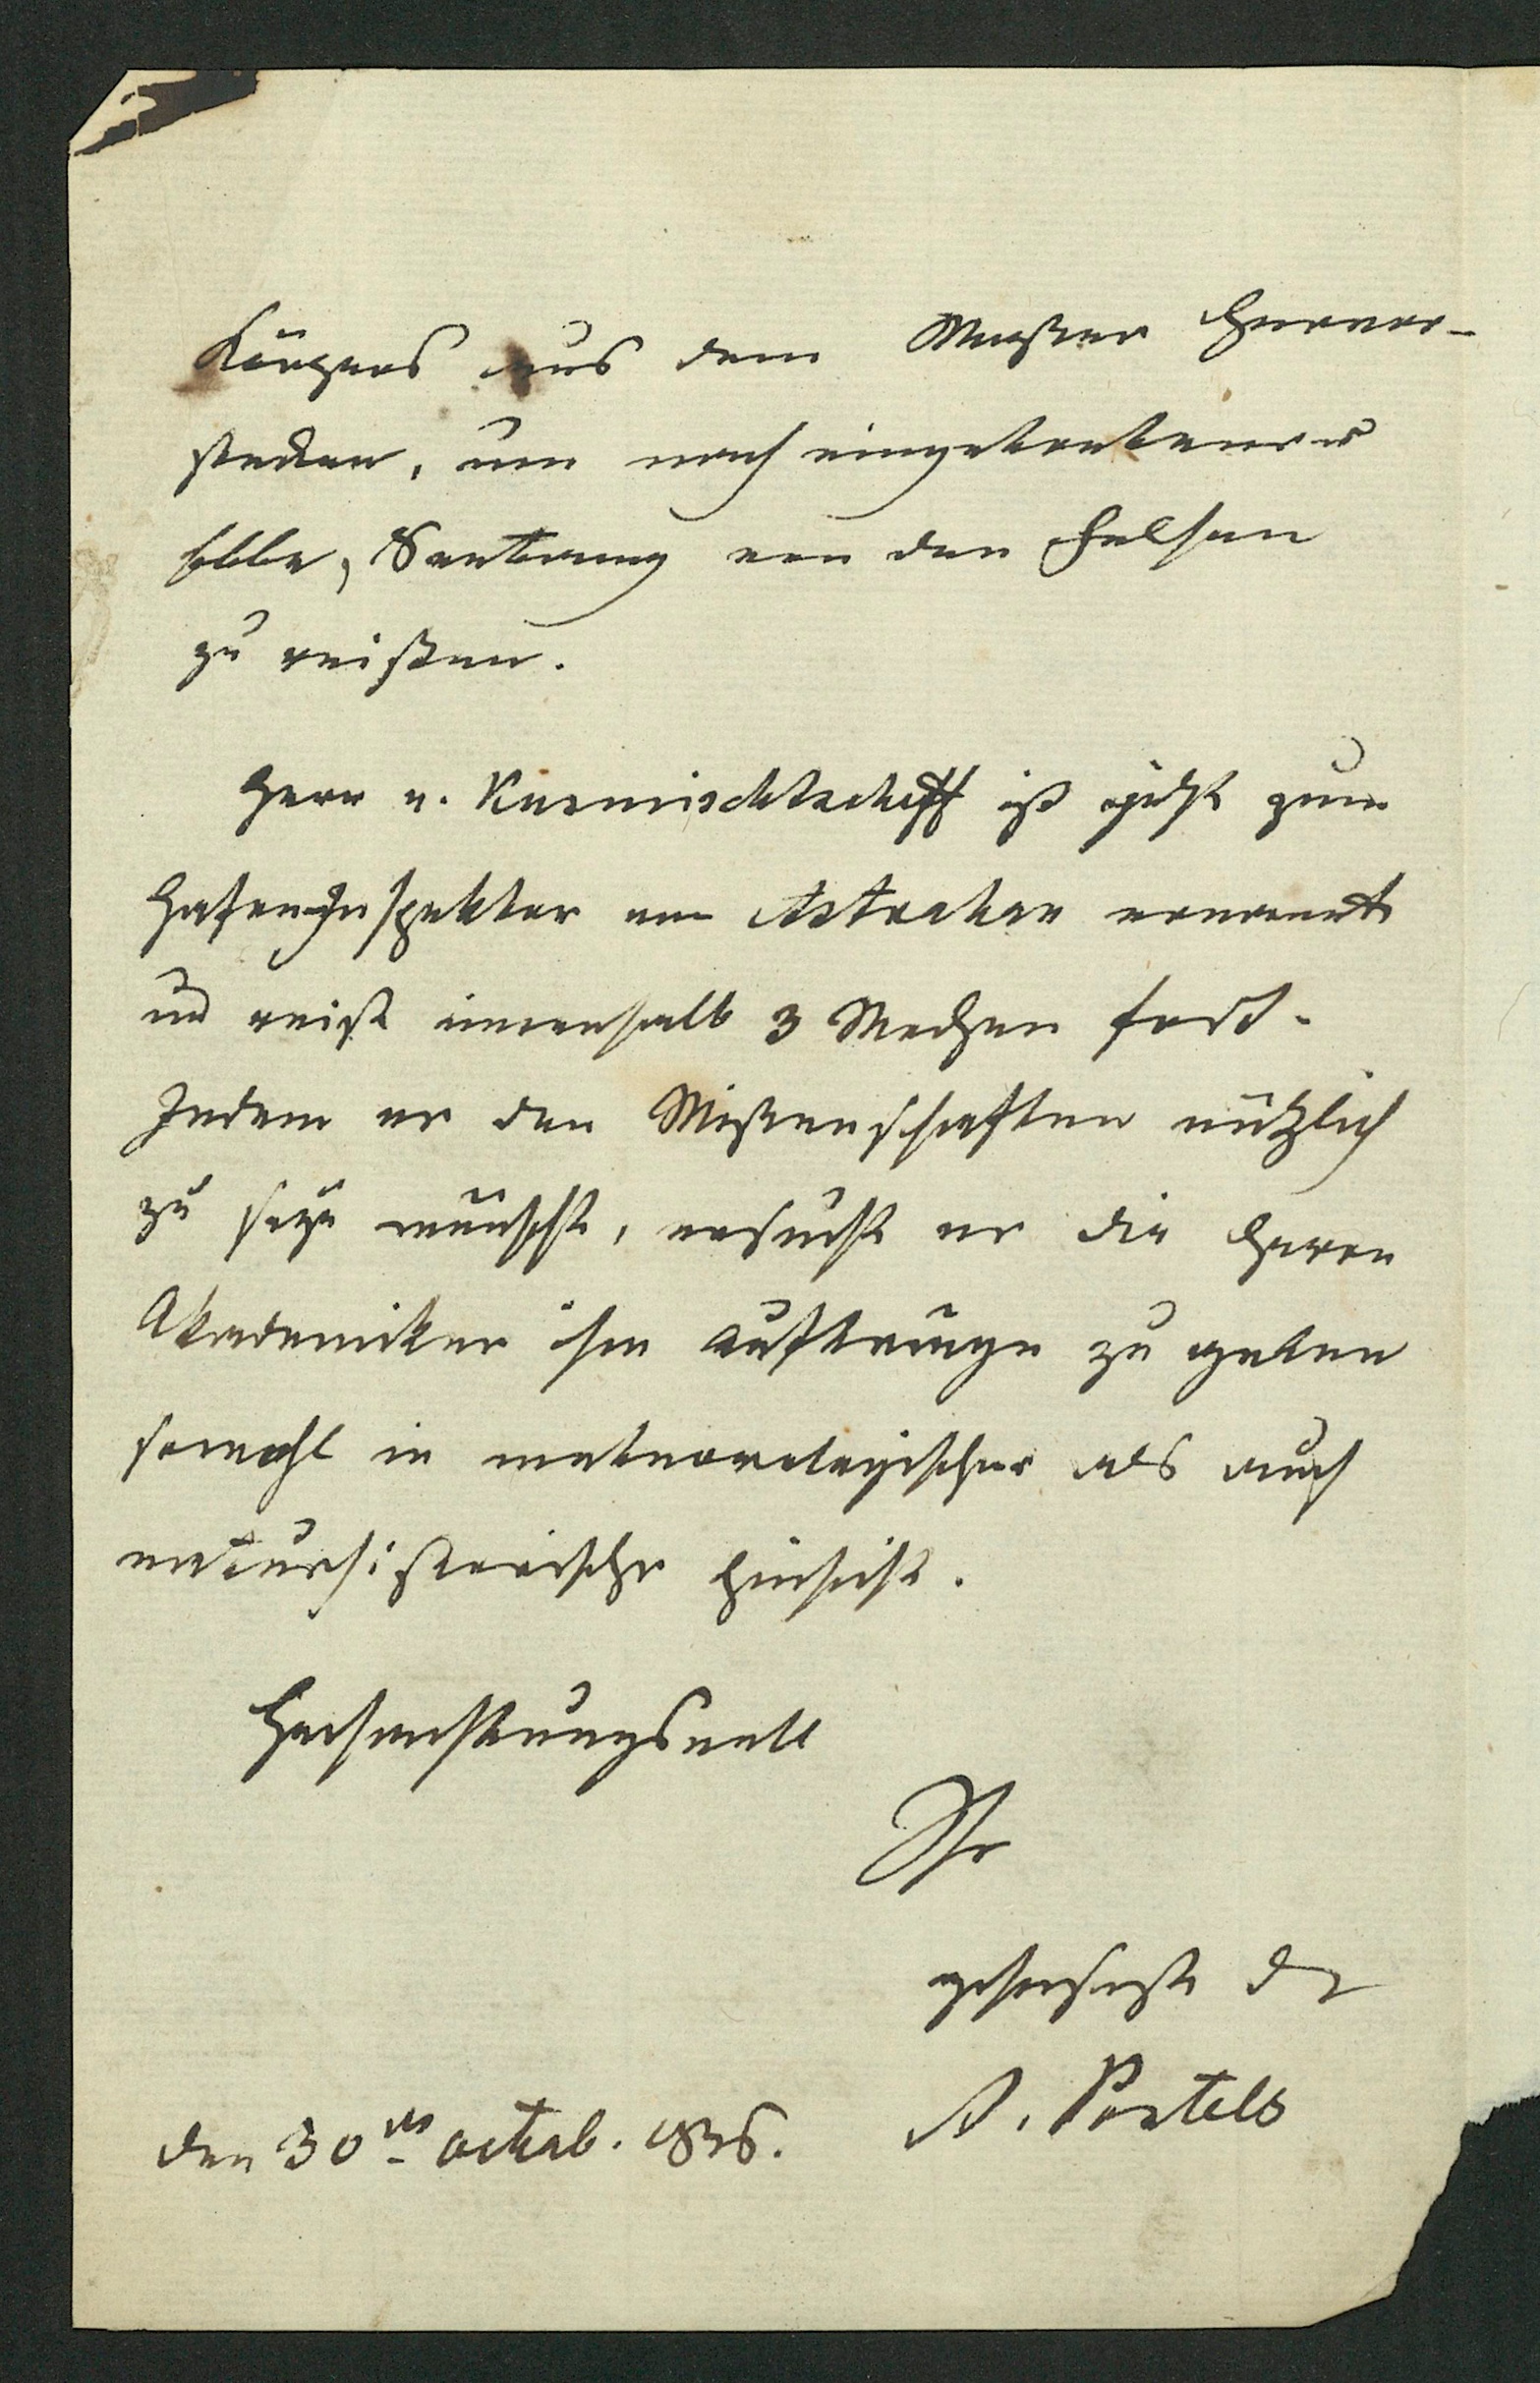 Körpers aus dem Wasser hervor-
stecken, um nach eingetretener
Ebbe, Nahrung von den Felsen
zu reißen.
Herr v. Kusmischtscheff ist jetzt zum
Hafen-Inspektor von Astrachan ernannt
und reist innerhalb 3 Wochen fort.
Indem er den Wissenschaften nützlich
zu seyn wünscht, ersucht er die Herren
Akademiker ihm Aufträge zu geben
sowohl in meteorologischer als auch
naturhistorischer Hinsicht.
Hochachtungsvoll
Ihr
gehorsamste
A. Postels
den 30ten Octob. 1836.